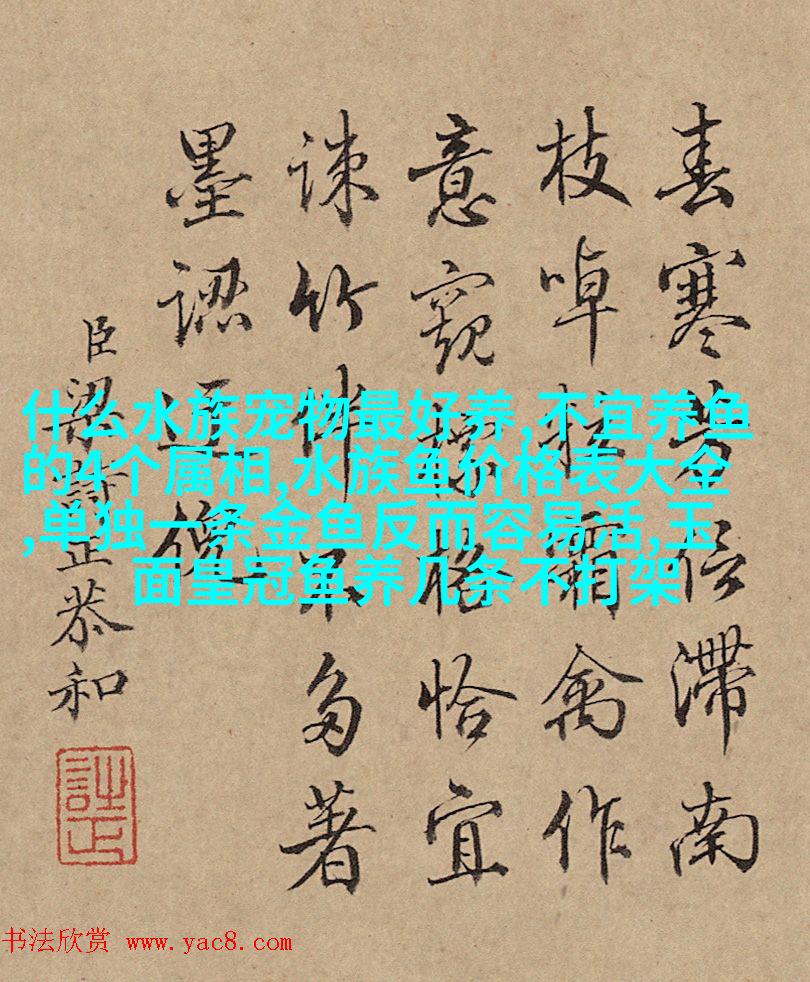 春寒芳信滯南
枝啅霜禽作
意窺格恰宜
疎竹伴不多著
墨認逋
臣梁詩正恭和
什么水族宠物最好养,不宜养鱼
的4个属相,水族鱼价格表大全
,单独一条金鱼反而容易活,玉
面皇冠鱼养几条不打架
书法欣赏 www.yac8.com